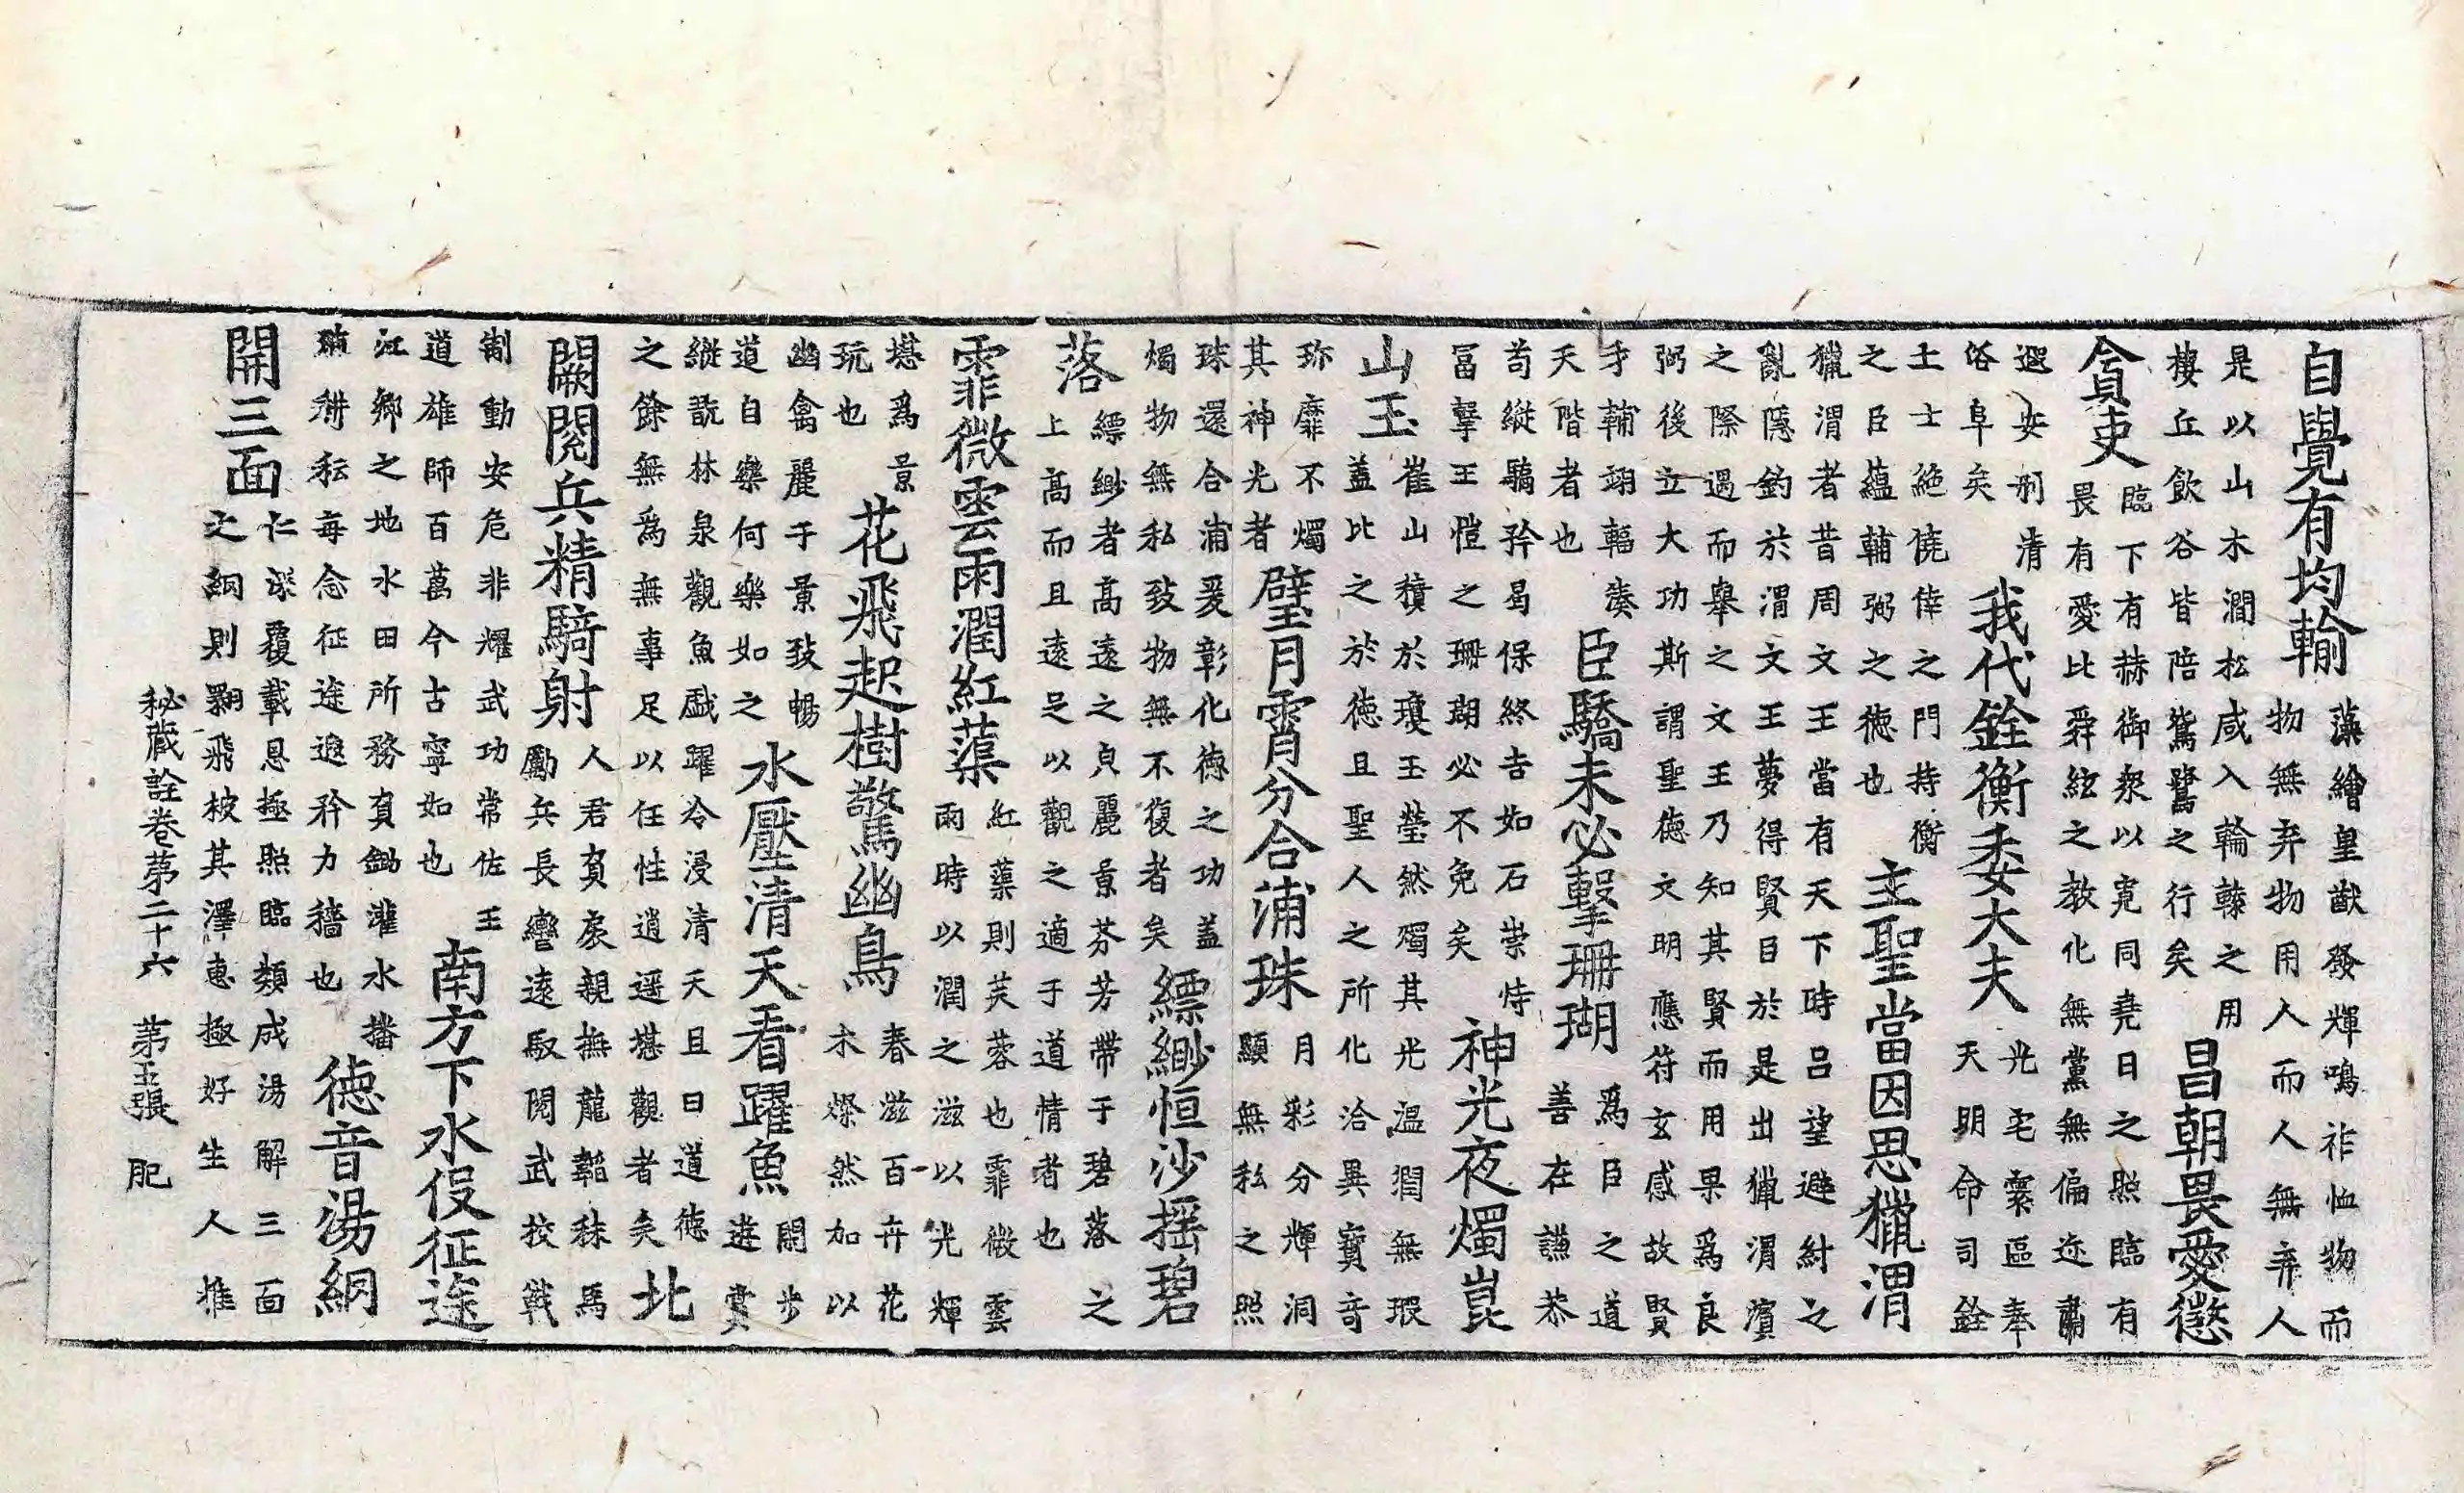 自覺有均輸
藻繪皇猷發輝鳴祚恤物而
物無弃物用人而人無弃人
是以山木澗松咸入輪轅之用
棲丘飲谷皆陪鴛鷺之行矣
昌朝畏愛懲
貪吏
臨下有赫御衆以寬同堯日之照臨有
畏有愛比舜絃之教化無黨無偏迩肅
遐安刑清
俗阜矣
我代銓衡委大夫
光宅寰區奉
天明命司銓
土士絶僥倖之門持衡
之臣藴輔弼之德也
主聖當因思獵渭
獵渭者昔周文王當有天下時吕望避紂之
亂隱釣於渭文王夢得賢目於是出獵渭濵
之際遇而舉之文王乃知其賢而用果爲良
弼後立大功斯謂聖德文明應符玄感故賢
才輔翊輻湊
天階者也
臣驕未必擊珊瑚
爲臣之道
善在謙恭
苟縱驕矜曷保終吉如石崇恃
冨擊王愷之珊瑚必不免矣
神光夜燭崑
山玉
崔山積於瓊玉瑩然燭其光温潤無瑕
蓋比之於德且聖人之所化洽異寳奇
珎靡不燭
其神光者
璧月霄分合浦珠
月彩分輝洞
顯無私之照
珠還合浦爰彰化德之功蓋
燭物無私致物無不復者矣
縹緲恒沙摇碧
落
縹緲者髙遠之貞麗景芬芳帶于碧落之
上髙而且遠足以觀之適于道情者也
霏微雲雨潤紅蕖
紅蕖則芙蓉也霏微雲
雨時以潤之滋以光輝
堪爲景
玩也
花飛起樹驚幽鳥
春滋百卉花
木燦然加以
幽禽麗于景致暢
道自樂何樂如之
水壓清天看躍魚
閑步
遊賞
縱翫林泉觀魚戲躍冷浸清天且曰道德
之餘無爲無事足以任性逍遥堪觀者矣
北
闕閲兵精騎射
人君負扆親撫龍韜秣馬
勵兵長轡遠馭閲武校戰
制動安危非耀武功常佐王
道雄師百萬今古寧如也
南方下水伇征途
江鄉之地水田所務負鋤灌水播
耕耘每念征途遐矜力穡也
德音湯網
開三面
仁深覆載恩極照臨類成湯解三面
之綱則翾飛被其澤惠極好生人推
秘藏詮卷第二十六 第五張 肥